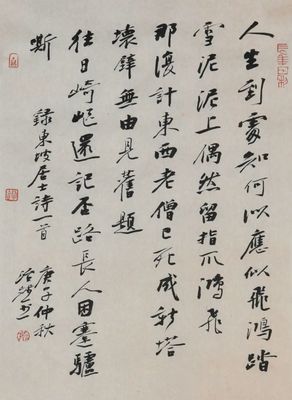 人生到處知何似應似飛鴻踏
雪泥泥上偶然留指爪鴻飛
那復計東西老僧已死成新塔
壞壁無由見舊題
往日崎嶇還記否路長人困蹇驢
嘶 錄東坡居士詩一首 庚子仲秋